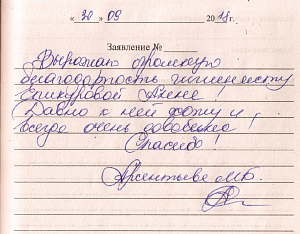 « 30 » 09 2018г.
Заявление №
Выражаю огромную
благодарность гигиенисту
Епикуровой Алене!
Давно к ней хожу и
всегда очень довольна!
Спасибо!
Арсентьева М.Б.